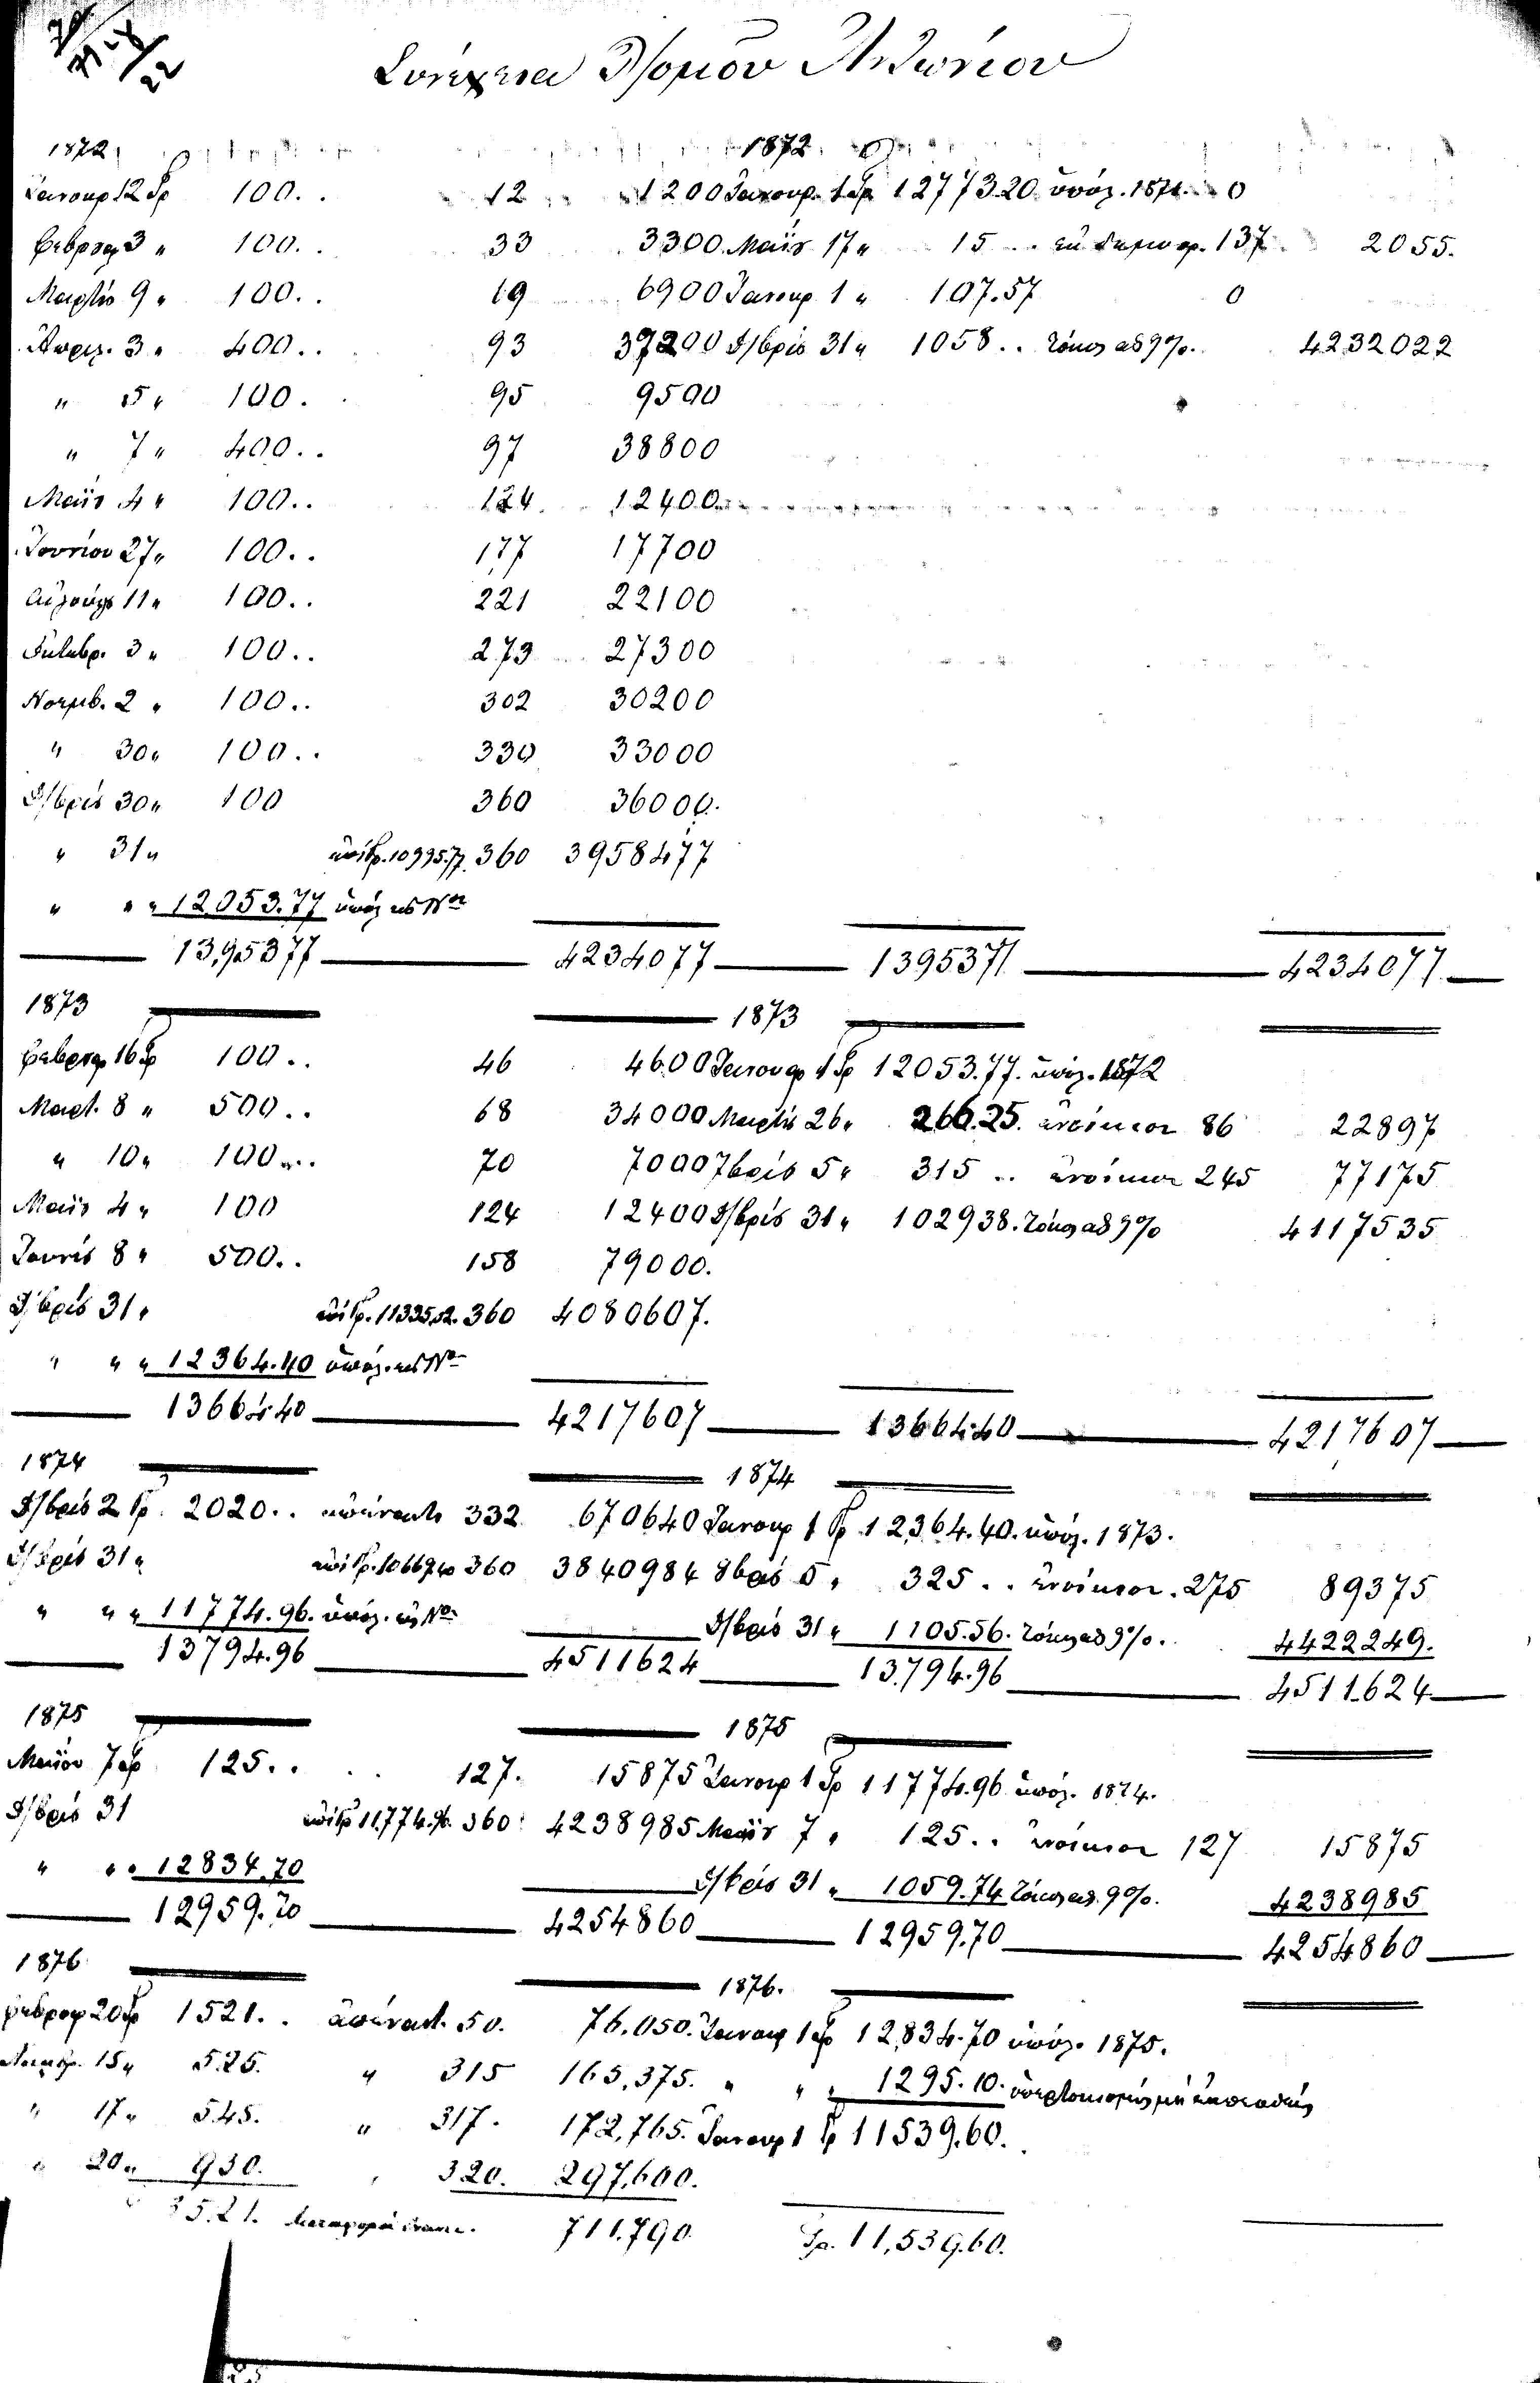 Συνέχεια Θωμού Αντωνίου
1872 1872
Ιανουαρ. 12 Γρ 100.. 12 1200 Ιανουρ. 1 Γρ 12773.20 υπόλ. 1871. 0
Φεβρουαρ 3 " 100.. 33 3300 Μαΐου 17 " 15.. 137 2055.
Μαρτίου 9 " 100.. 69 6900 Ιανουρ 1 " 107.57 0
Απριλ. 3 " 400.. 93 37200 Δ/βρίου 31 " 1058.. τόκος αδ 9%. 4232022
" 5 " 100. 95 9500
" 7 " 400.. 97 38800
Μαΐου 4 " 100.. 124 12400
Ιουνίου 27 " 100.. 177 17700
Αυγούστου 11 " 100.. 221 22100
3 " 100.. 273 27300
Νοεμβ. 2 " 100.. 302 30200
" 30 " 100.. 330 33000
Δ/βρίου 30 " 100 360 36000.
" 31 " επί Γρ. 10995.77 360 3958477
" " " 12053.77 υπόλ εις Νον
13,95377 4234077 1395377 4234077
1873 1873
Φεβρουαρ 16 Γρ 100.. 46 4600 Ιανουαρ 1 Γρ 12053.77. υπόλ. 1872
Μαρτ. 8 " 500.. 68 34000 Μαρτίου 26 " 266.25. ενοίκιον 86 22897
" 10 " 100... 70 7000 7βρίου 5 " 315.. ενοίκιον 245 77175
Μαΐου 4 " 100 124 12400 Δ/βρίου 31 " 102938. τόκος αδ 9% 4117535
Ιουνίου 8 " 500.. 158 79000.
Δ/βρίου 31 " επί Γρ. 11335.52. 360 4080607.
" " " 12364.40 υπόλ. εις Νον
1366440 4217607 1366440 4217607
1874 1874
Δ/βρίου 2 Γρ 2020.. απέναντι 332 670640 Ιανουρ 1 Γρ 12364.40. υπόλ. 1873.
Δ/βρίου 31 " επί Γρ. 10669.40 360 3840984 8βρίου 5 " 325.. ενοίκιον. 275 89375
" " " 11774.96. υπόλ. εις Νον Δ/βρίου 31 " 1105.56. τόκος αδ 9%. 4422249.
13794.96 4511624 13.794.96 4511624
1875 1875
Μαΐου 7 Γρ 125.. 127. 15875 Ιανουρ 1 Γρ 11774.96 υπόλ. 1874.
Δ/βρίου 31 επί Γρ 11,774.96. 360 4238985 Μαΐου 7 " 125.. ενοίκιον 127 15875
" " " 12834.70 Δ/βρίου 31 " 1059.74 τόκος αδ. 9%. 4238985
12959.70 4254860 12959.70 4254860
1876 1876.
Φεβρουαρ 20 Γρ 1521.. απέναντι 50. 76,050. Ιανουαρ 1 Γρ 12,834.70 υπόλ. 1875.
15 " 525. " 315 165,375. " " " 1295.10.
" 17 " 545. " 317. 172,765. Ιανουρ 1 Γρ 11539.60.
" 20 " 930. 320. 297,600.
3521. 711.790. Γρ. 11,539.60.